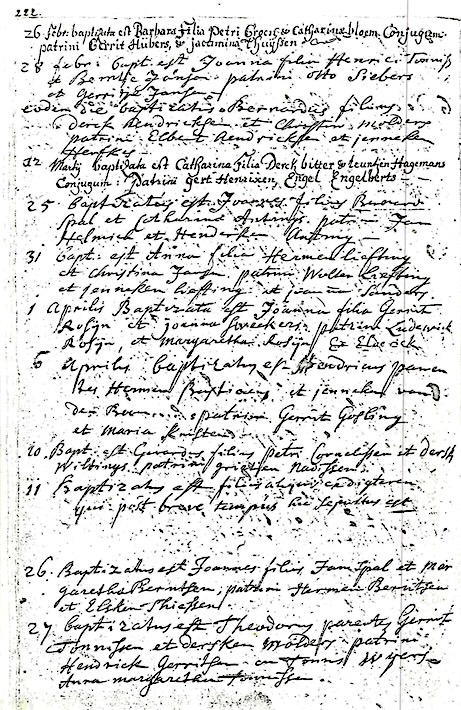 222.
26 febr: baptizata est Barbara filia Petri Groen & Catharinæ bloem Conjugum
patrini Gerrit Hubers, & jacomina Thuijssen
28 febr: bapt. est Joanna filia Henrici Tonniss
et Berntje Jansen patrini Otto Siebers
et Gerritje Jansen
eodem die baptizatus Bernardus filius
Derck Hendricksen et Christina Molders
patrini Elbert Hendricksen et jenneken
12 Martij baptizata est Catharina filia Derck bitter & teuntjen Hagemans
Conjugum: Patrini Gert Henrixen, Engel Engelberts
25 baptizatus est Joannes filius
Spal et Catharina Antings patri: Jan
Helmich et Henderken Anting
31 bapt: est Anna filia Hermen lieffting
et Christina Jansen patrini Wolter lieffting
et jenneken lieffting et joanna Sanders
1 Aprilis Baptizata est Joanna filia Gerrit
Rosijn et joanna Sweekers patrini Ludewick
Rosijn, et margaretha Rosijn
6 Aprilis baptizatus est Hendricus paren
tes Hermen et jenneken vand
den patrini Gerrit Gosling
et Maria
10. Bapt. est Gerardus filius Petri Cornelissen et dersk
Wilbings patrini grietjen Nadissen
11 Baptizatus est filius alicujus
qui post breve tempus hic sepultus est
26. Baptizatus est Joannes filius Jan Spal et mar
garetha Berntsen, patrini Hermen Berntsen
et Elsken Thiessen
27 baptizatus est Theodorus parentes Gerrit
Tonnissen et dersken Molder patrini
Hendrick Gerritsen en Tonnis Wijers
Anna margaretha Tonissen